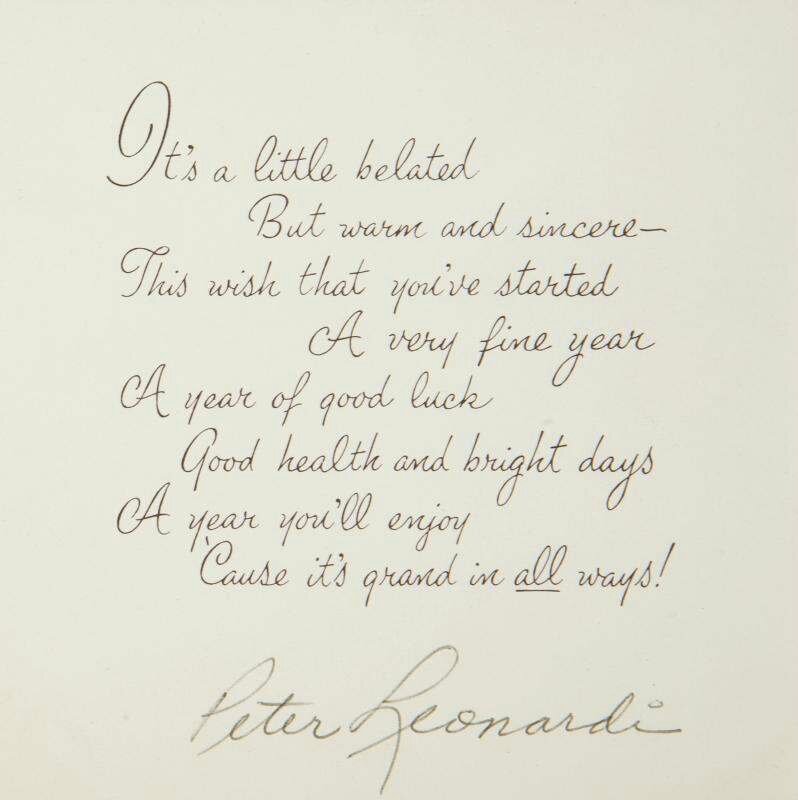 It's a little belated
But warm and sincere—
This wish that you've started
A very fine year
A year of good luck
Good health and bright days
A year you'll enjoy
'Cause it's grand in all ways!
Peter Leonardi